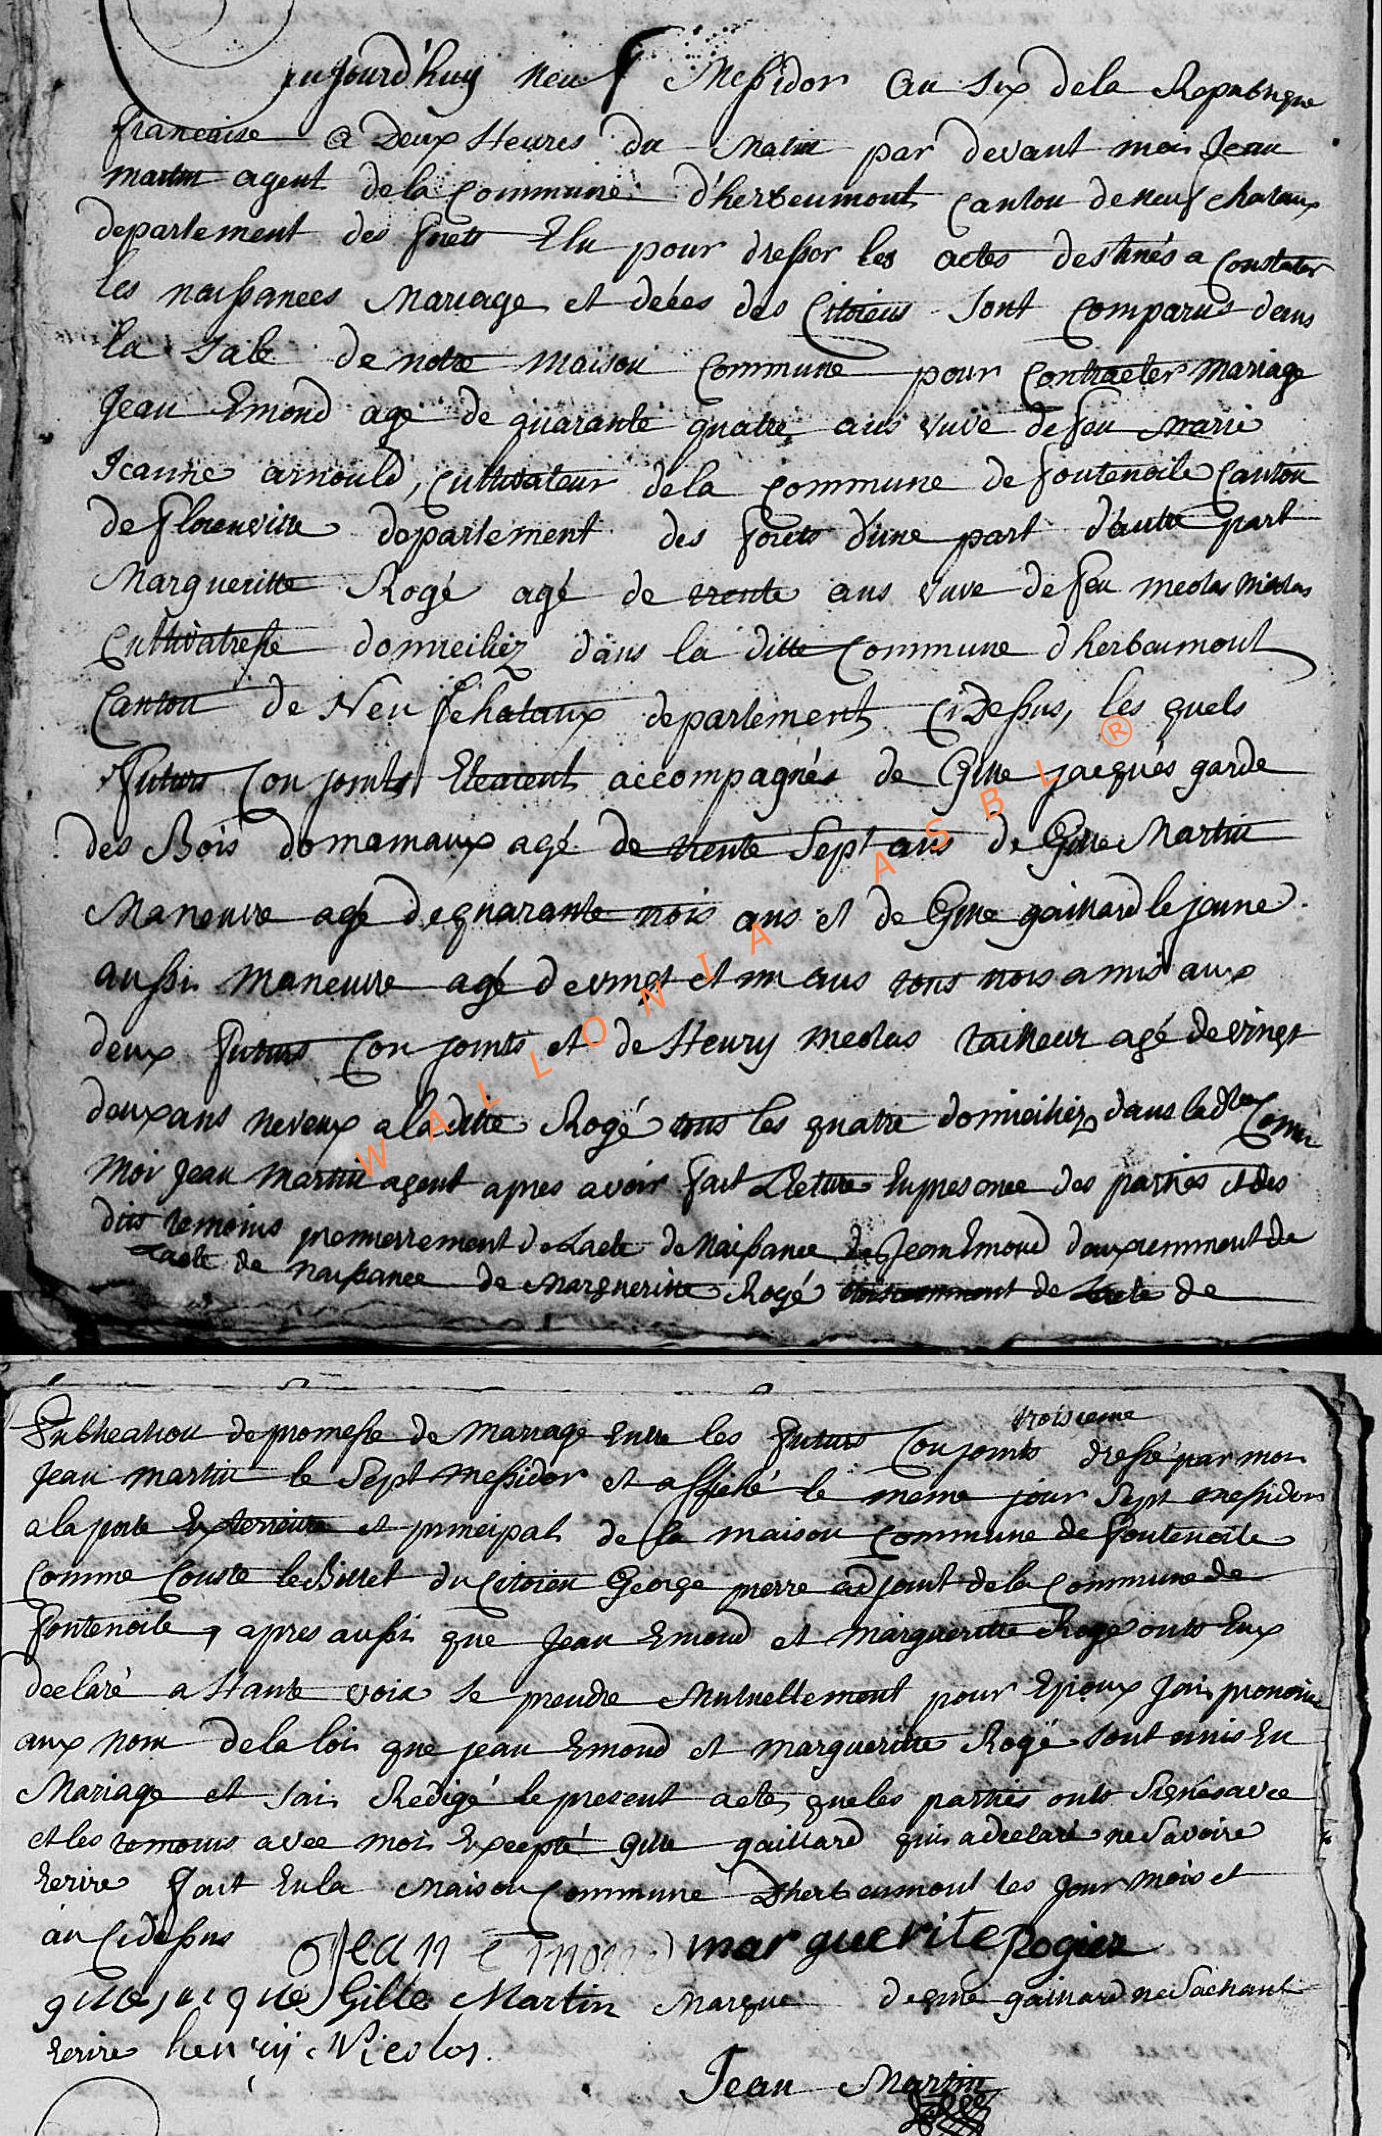 aujourd'huy neuf Messidor an six dela Republique
francaise a Deux Heures du Matin par devant moi Jean
martin agent dela Commune d'herbeumont Canton de neufchataux
departement des forets Elu pour dresser les actes destinés a Constater
les naissances Mariage et décés des Citoiens sont comparus dans
la sale de notre maison Commune pour Contracter mariage
Jean Emond agé de quarante quatre ans vuve de feu marie
Jeanne arnould, Cultivateur dela commune de fontenoile Canton
de florenville departement des forets d'une part d'autre part
Margueritte Rogé agé de trente ans vuve de feu nicolas Nicolas
Cultivatresse domiciliez dans la ditte Commune d'herbeumont
Canton de Neufchataux departement CiDessus, les quels
Futurs Conjoints Etaient accompagnés de Gille jacques garde
des Bois domaniaux agé de trente Sept ans de Gille Martin
Maneuvre agé de quarante trois ans et de Gille gaillard le jeune
aussi maneuvre agé de vingt et un ans tous trois amis aux
deux futurs Conjoints et de Henry nicolas tailleur agé de vingt
deux ans neveux a la ditte Rogé tous les quatre domiciliez dans ladte Comm
Moi Jean Martin agent apres avoir fait Lecture En presence des parties et des
dits temoins premierrement de Lacte de Naissance de Jean Emond deuxiemment de
Lacte de naissance de Margueritte Rogé troisiemment de Lacte de
troisieme
Publication de promesse de Mariage Entre les futurs Conjoints dressé par moi
Jean martin le Sept Messidor et affiché le meme jour Sept messidor
a la porte Exterieure et principale de la maison Commune de fontenoile
Comme Conste le Billet du Citoien George pierre adjoint dela Commune de
fontenoile, apres aussi que Jean Emond et margueritte Rogé onts Eux
declaré a Haute voix se prendre Mutuellement pour Epoux Jai prononcé
aux nom dela loi que jean Emond et margueritte Rogé sont unis En
Mariage et Jai Redigé le present acte que les parties onts Signés avec
et les temoins avec moi Excepté Gille gaillard qui a declaré ne Savoire
Ecrire fait En la Maison Commune D'herbeumont les Jour Mois et
an Cidessus Jean Emond marguerite Rogier
gille jacque Gille Martin Marque de gille gaillard ne Sachant
Ecrire henrij Nicolas.
Jean Martin
WALLONIA ASBL ®